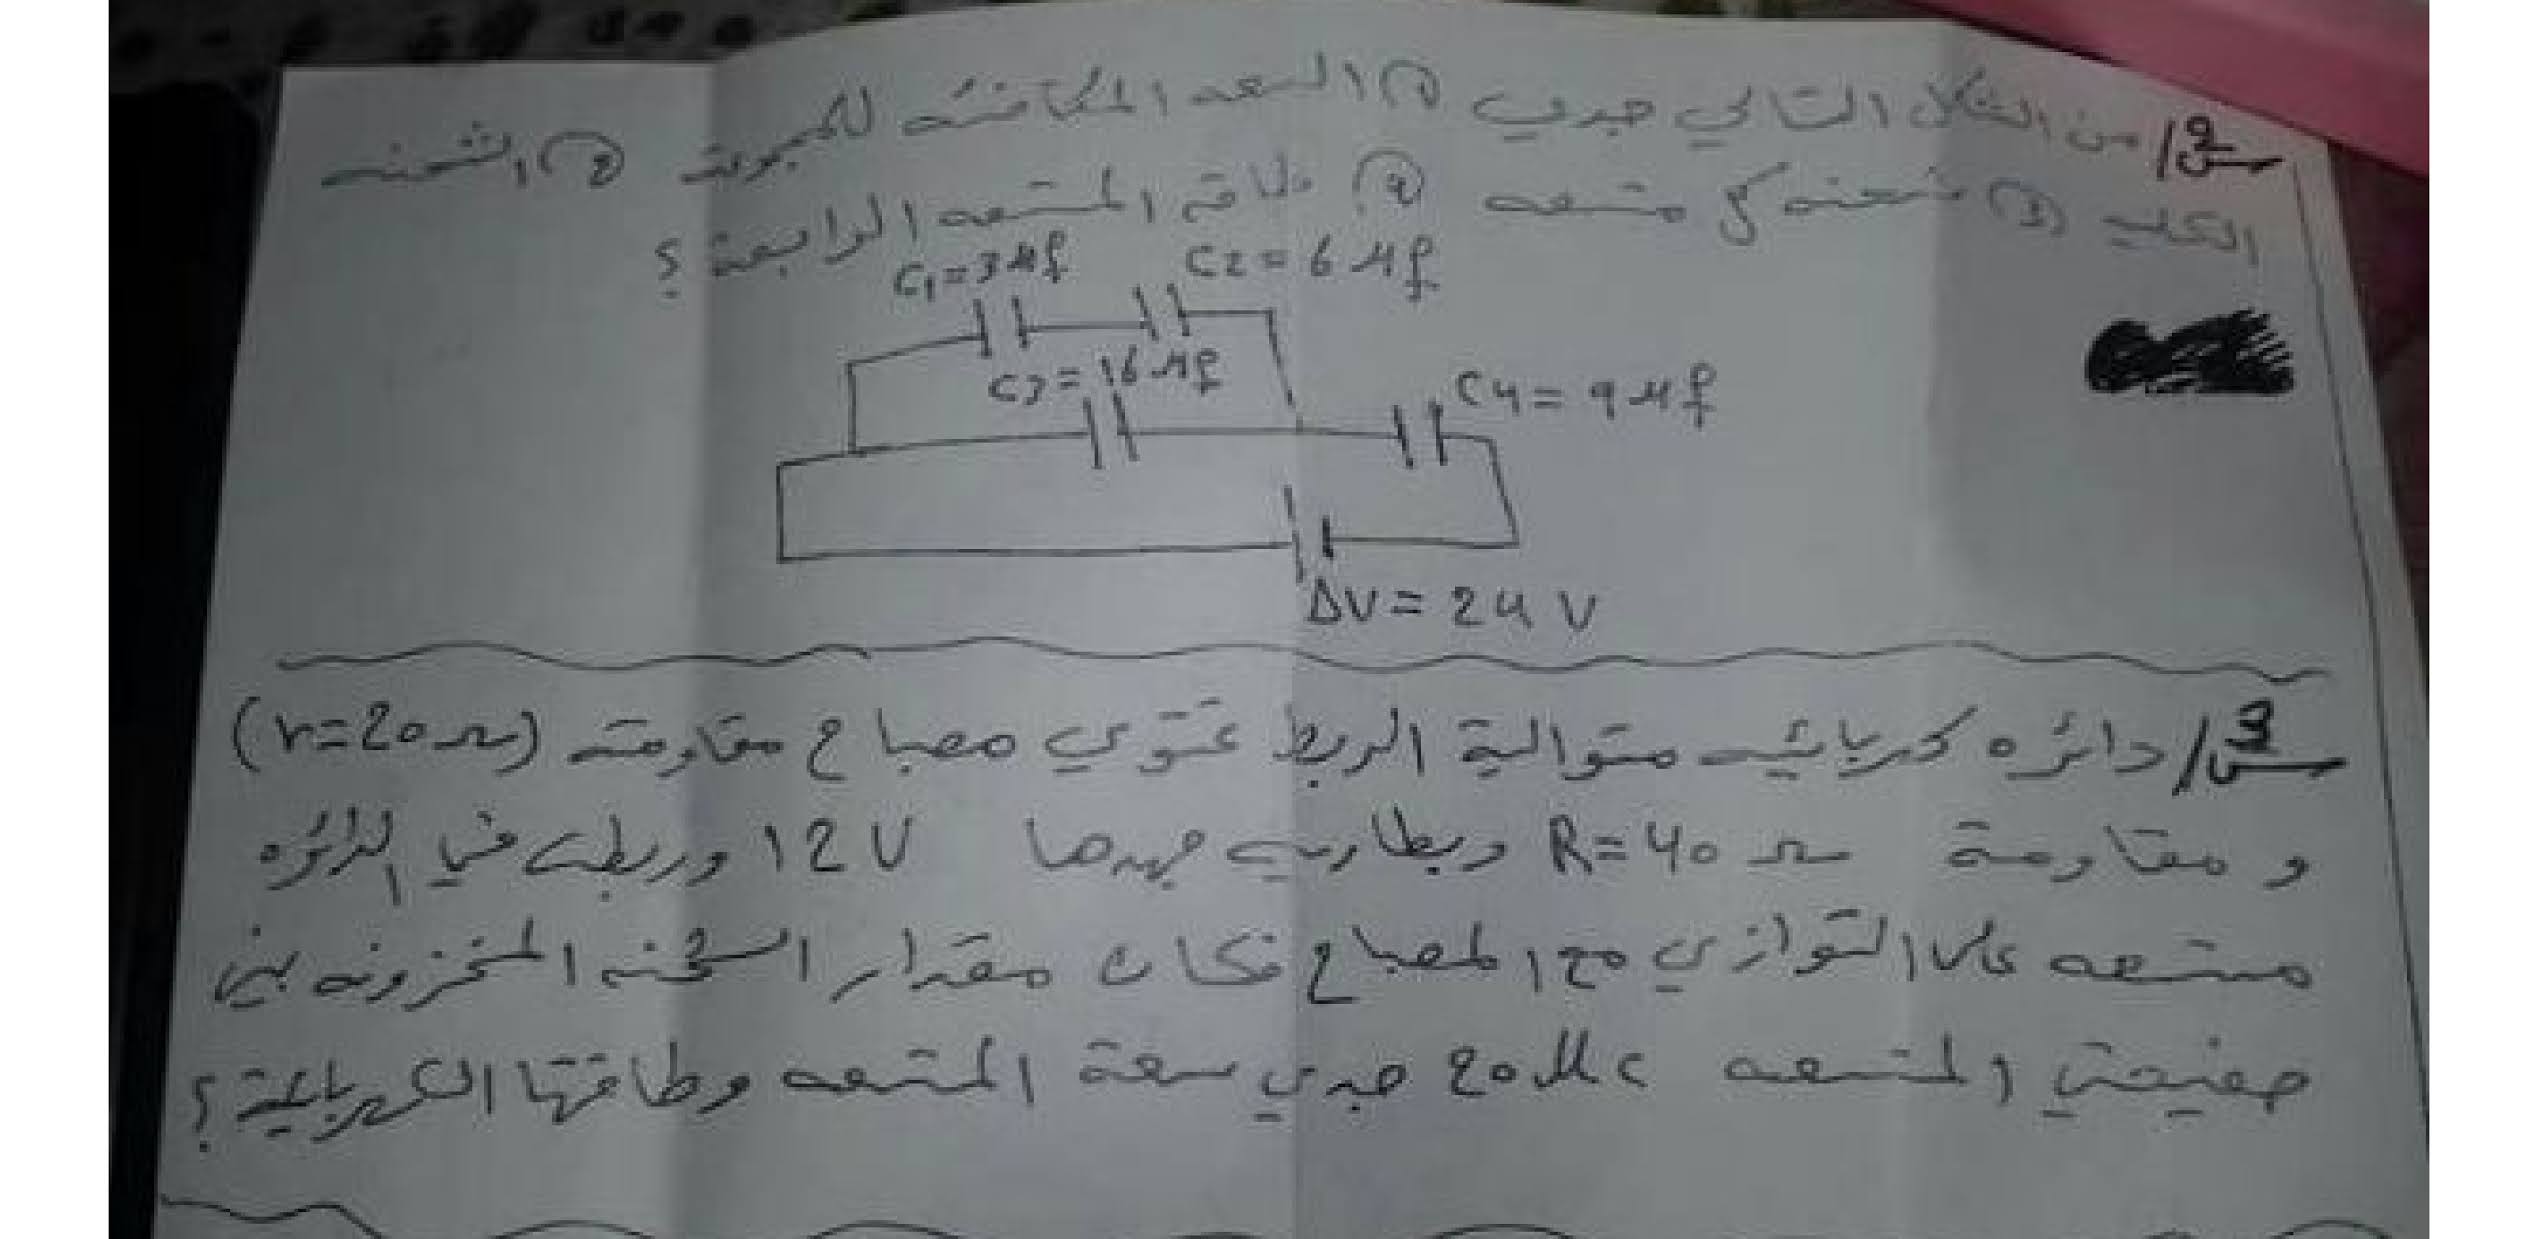 س2/ من الشكل التالي جدي ① السعه المكافئه للمجموعة ② الشحنه
الكليه ③ شحنه كل متسعه ④ طاقة المتسعه الرابعة ؟
C1=3μf C2=6μf
C3=16μf
C4=9μf
ΔV=24V
س3/ دائره كربائيه متوالية الربط تحتوي مصباح مقاومته (r=20Ω)
و مقاومة R=40Ω وبطاريه جهدها 12V وربطت في الدائره
متسعه على التوازي مع المصباح فكان مقدار الشحنه المخزونه بين
صفيحتي المتسعه 20μc جدي سعة المتسعه وطاقتها الكهربائية ؟